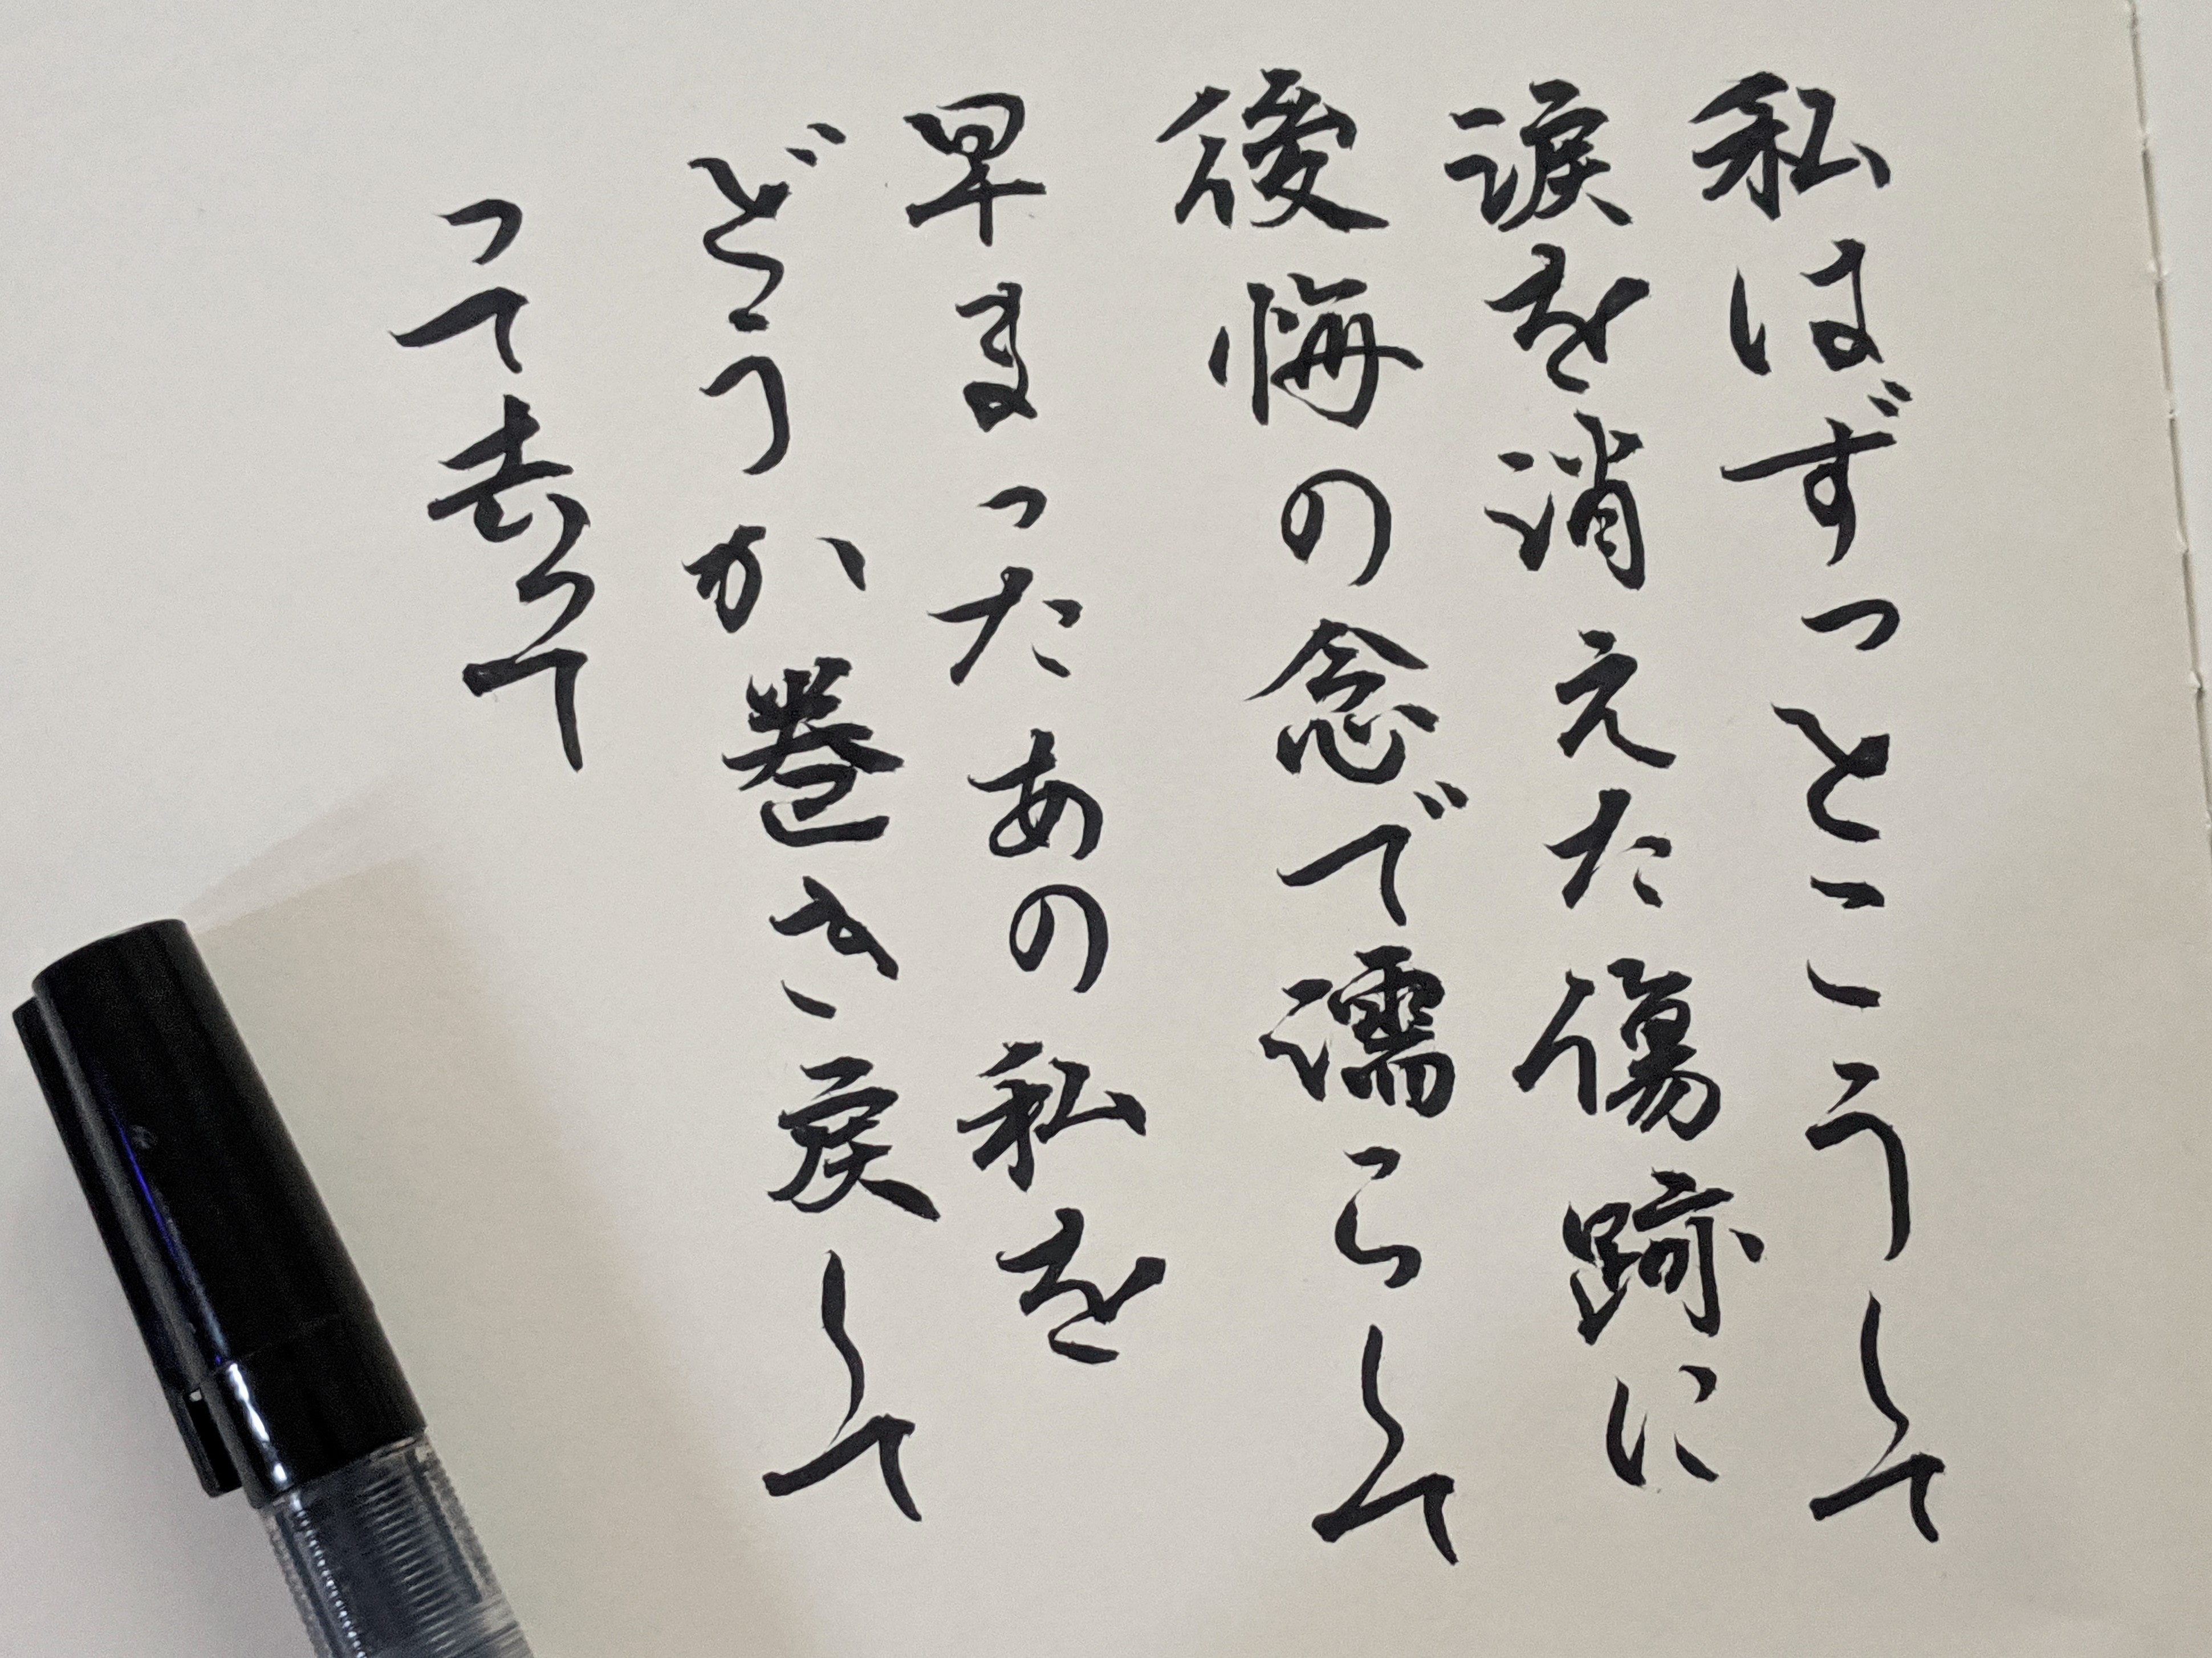 私はずっとこうして
涙を消えた傷跡に
後悔の念で濡らして
早まったあの私を
どうか巻き戻して
って去って